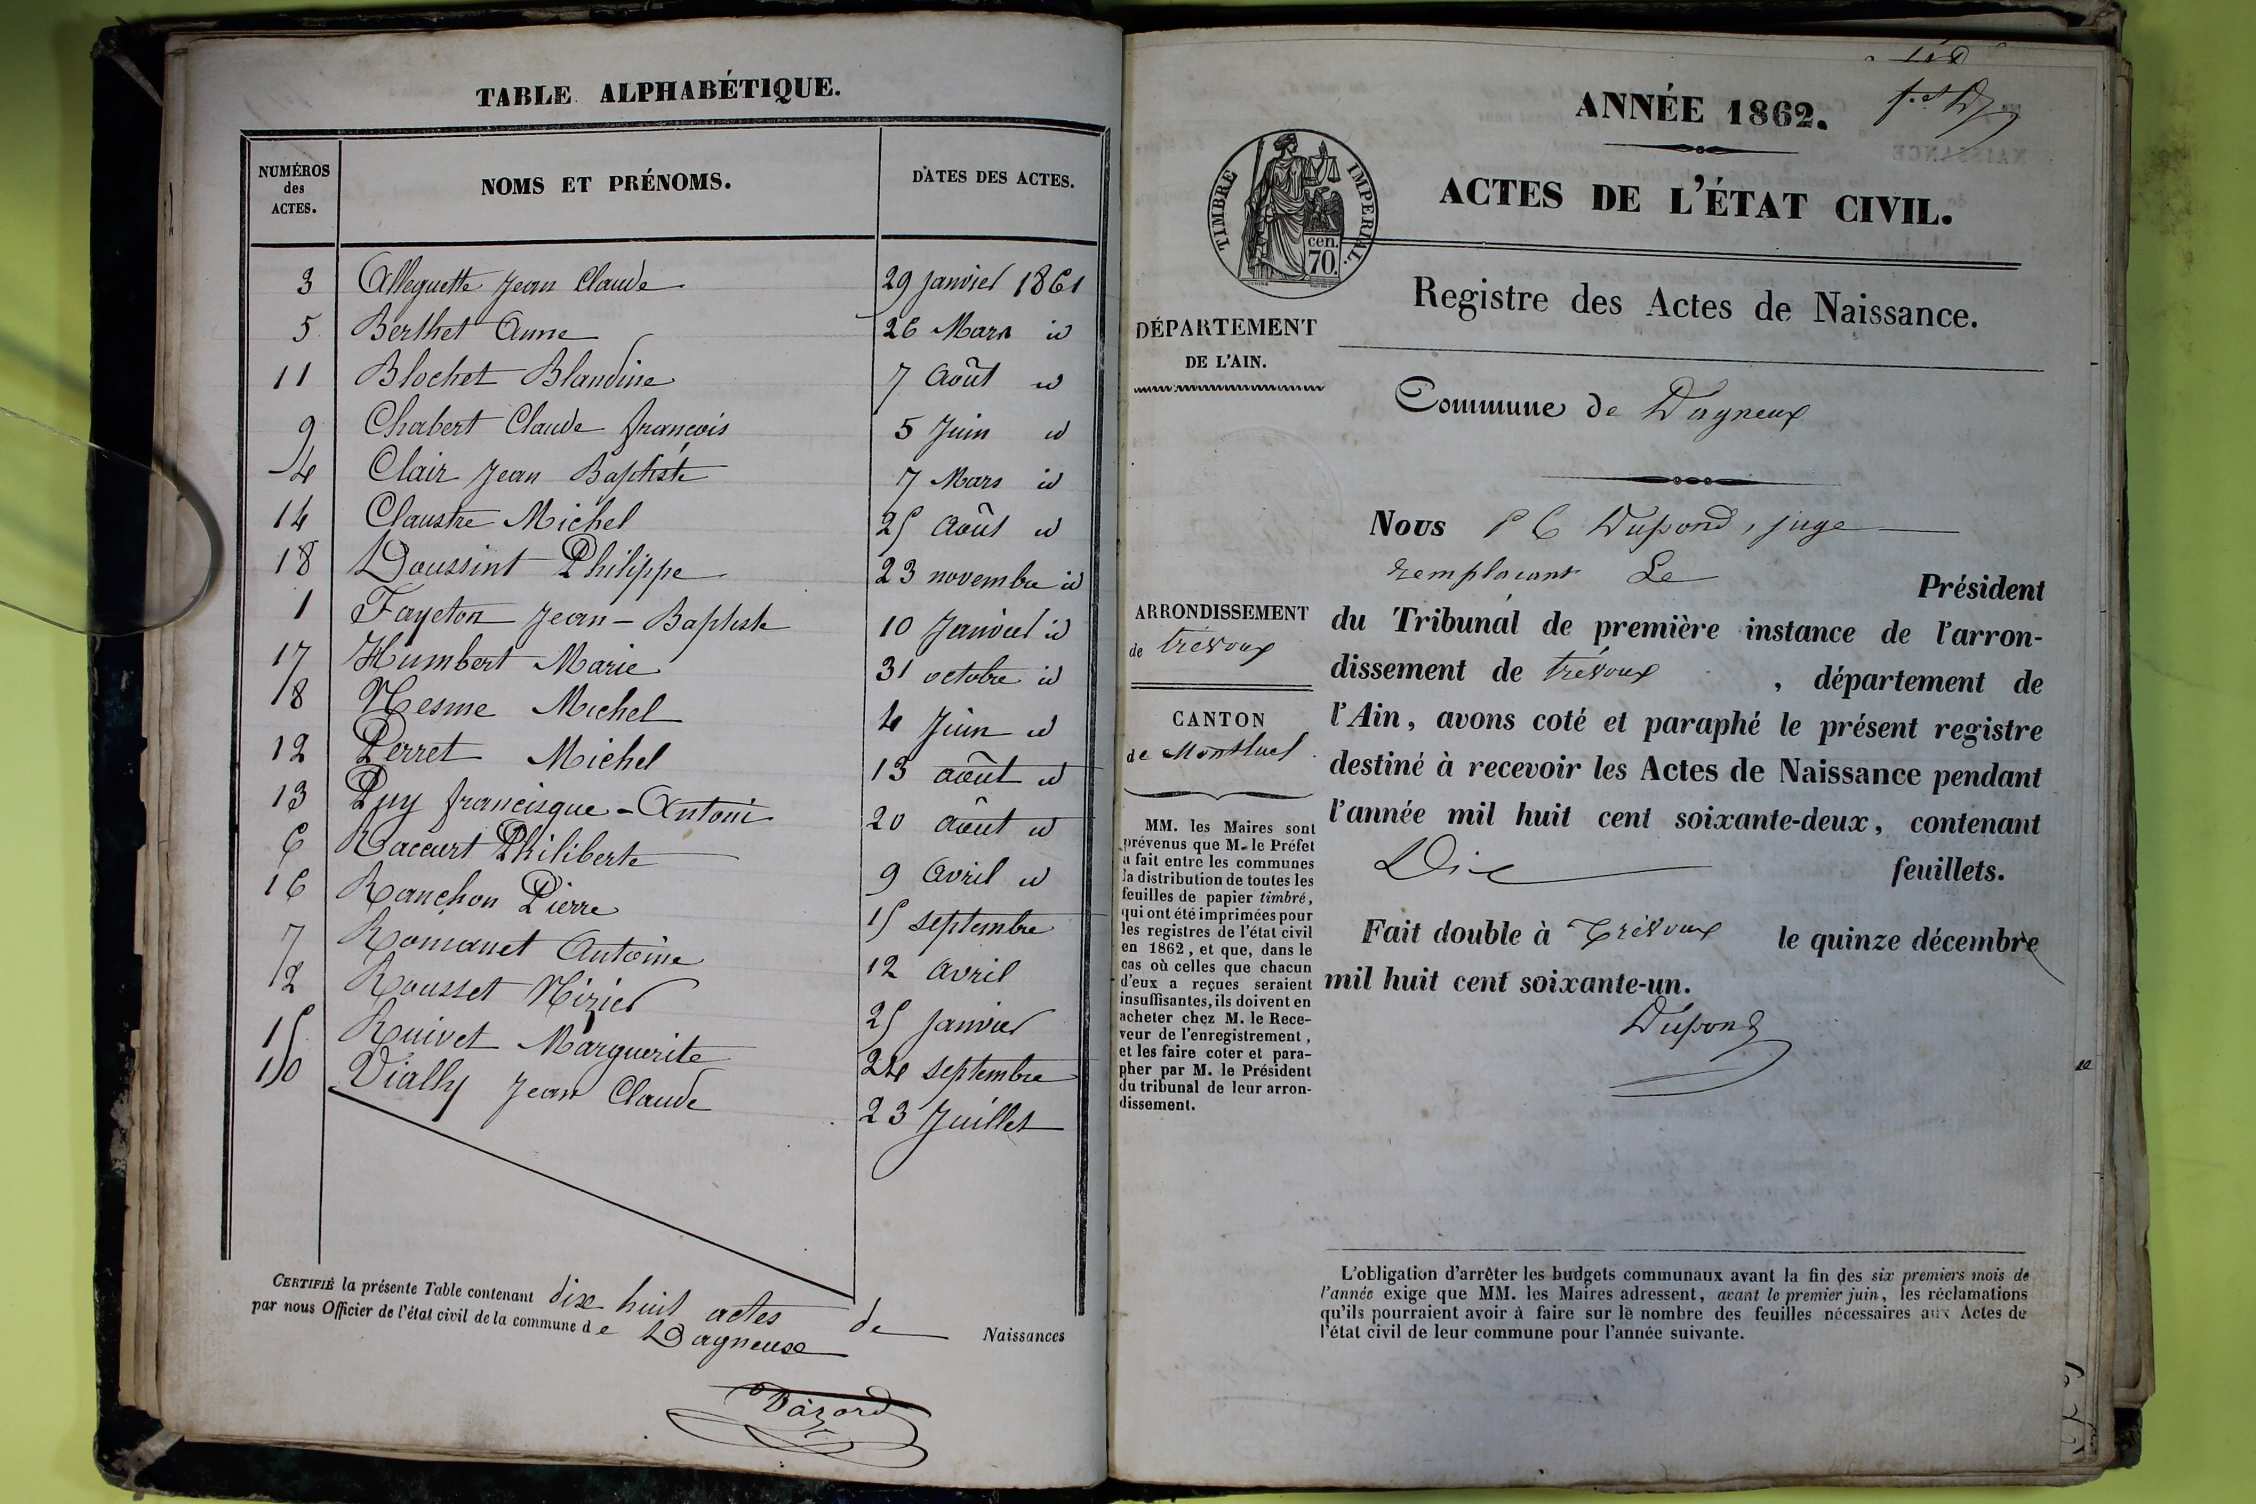 TABLE ALPHABÉTIQUE.
NUMÉROS des ACTES. NOMS ET PRÉNOMS. DATES DES ACTES.
3 Alleguette Jean Claude 29 Janvier 1861
5 Berthet Anne 26 Mars id
11 Blochet Blandine 7 Août id
9 Chabert Claude françois 5 Juin id
4 Clair Jean Baptiste 7 Mars id
14 Claustre Michel 25 Août id
18 Doussint Philippe 23 novembre id
1 Fayeton Jean-Baptiste 10 Janvier id
17 Humbert Marie 31 octobre id
8 Nesme Michel 4 Juin id
12 Perret Michel 13 août id
13 Puy francisque-Antoni 20 août id
6 Raccurt Philiberte 9 Avril id
16 Ranchon Pierre 15 septembre
7 Romanet Antoine 12 Avril
2 Rousset Nizier 25 Janvier
15 Ruivet Marguerite 24 septembre
10 Vially Jean Claude 23 Juillet
CERTIFIÉ la présente Table contenant dix huit actes de Naissances
par nous Officier de l'état civil de la commune de Dagneux
ANNÉE 1862.
TIMBRE IMPERIAL.
cen.
70.
ACTES DE L'ÉTAT CIVIL.
Registre des Actes de Naissance.
DÉPARTEMENT
DE L'AIN.
Commune de Dagneux
Nous P C Dupond, juge
remplacant Le Président
du Tribunal de première instance de l'arron-
dissement de trévoux , département de
l'Ain, avons coté et paraphé le présent registre
destiné à recevoir les Actes de Naissance pendant
l'année mil huit cent soixante-deux, contenant
Dix feuillets.
Fait double à Trévoux le quinze décembre
mil huit cent soixante-un.
Dupond
ARRONDISSEMENT
de trévoux
CANTON
de Montluel
MM. les Maires sont
prévenus que M. le Préfet
a fait entre les communes
la distribution de toutes les
feuilles de papier timbré,
qui ont été imprimées pour
les registres de l'état civil
en 1862, et que, dans le
cas où celles que chacun
d'eux a reçues seraient
insuffisantes, ils doivent en
acheter chez M. le Rece-
veur de l'enregistrement,
et les faire coter et para-
pher par M. le Président
du tribunal de leur arron-
dissement.
L'obligation d'arrêter les budgets communaux avant la fin des six premiers mois de
l'année exige que MM. les Maires adressent, avant le premier juin, les réclamations
qu'ils pourraient avoir à faire sur le nombre des feuilles nécessaires aux Actes de
l'état civil de leur commune pour l'année suivante.